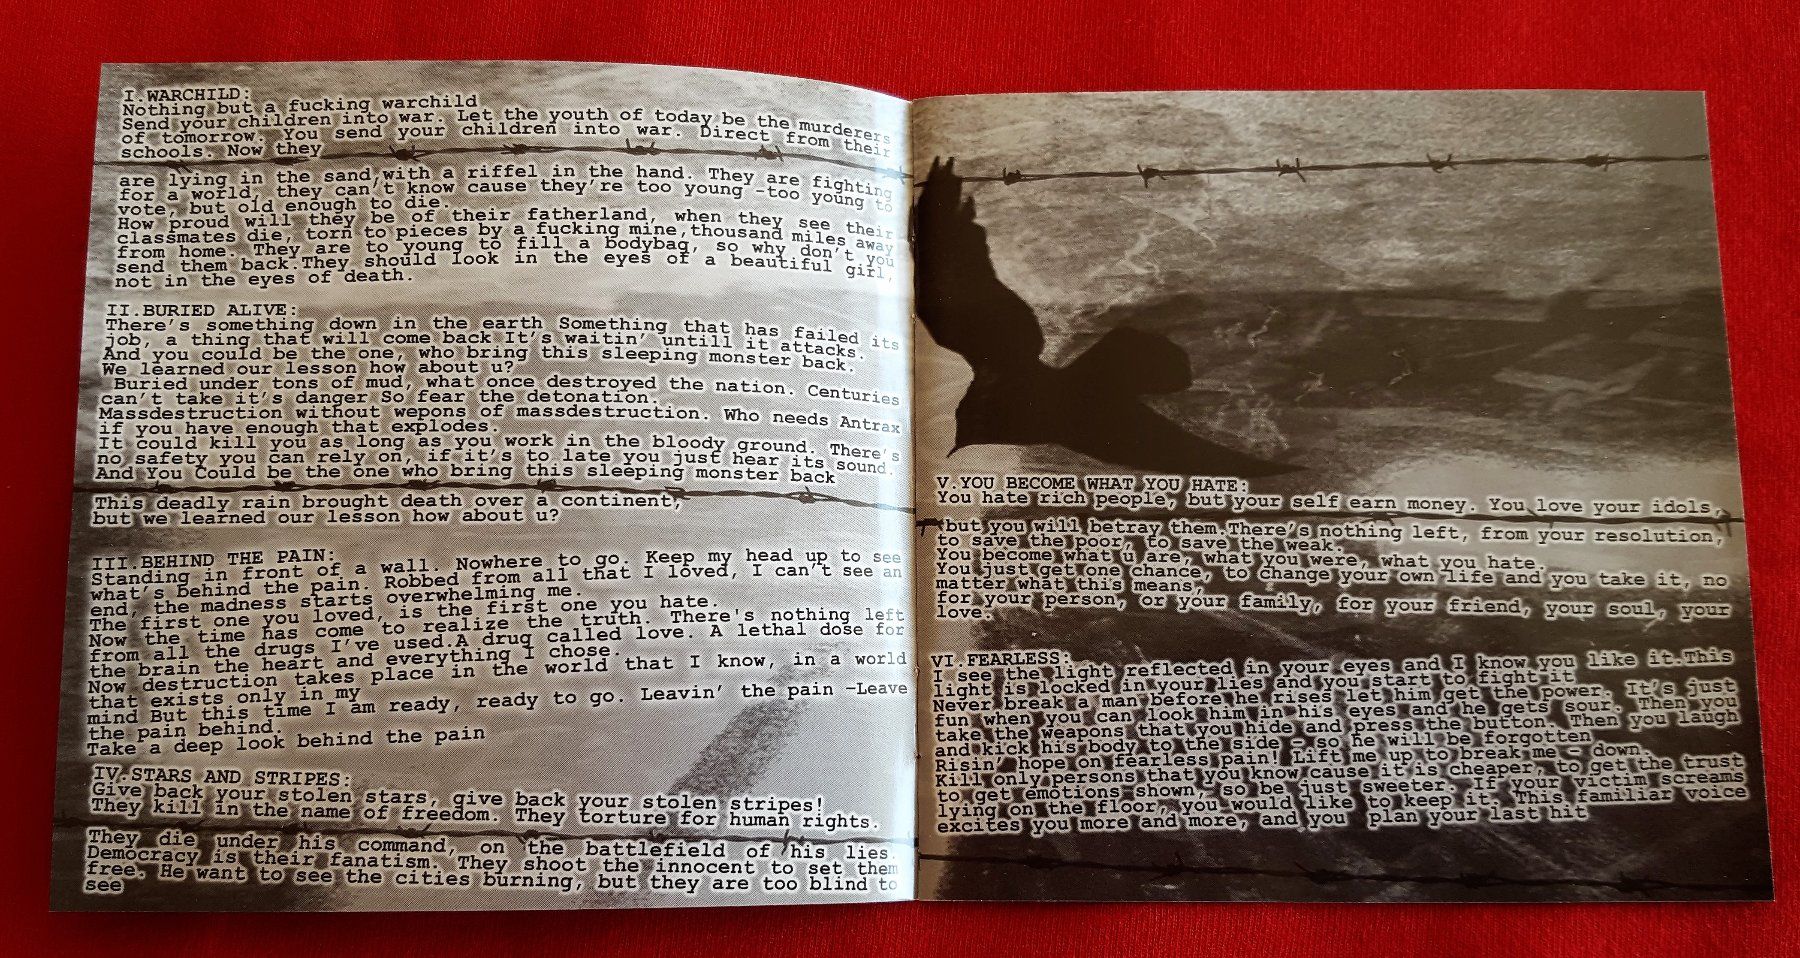 I.WARCHILD:
Nothing but a fucking warchild
Send your children into war. Let the youth of today be the murderers
of tomorrow. You send your children into war. Direct from their
schools. Now they
are lying in the sand,with a riffel in the hand. They are fighting
for a world, they can't know cause they're too young -too young to
vote, but old enough to die.
How proud will they be of their fatherland, when they see their
classmates die, torn to pieces by a fucking mine,thousand miles away
from home. They are to young to fill a bodybag, so why don't you
send them back.They should look in the eyes of a beautiful girl,
not in the eyes of death.
II.BURIED ALIVE:
There's something down in the earth Something that has failed its
job, a thing that will come back It's waitin' untill it attacks.
And you could be the one, who bring this sleeping monster back.
We learned our lesson how about u?
Buried under tons of mud, what once destroyed the nation. Centuries
can't take it's danger So fear the detonation.
Massdestruction without wepons of massdestruction. Who needs Antrax
if you have enough that explodes.
It could kill you as long as you work in the bloody ground. There's
no safety you can rely on, if it's to late you just hear its sound.
And You Could be the one who bring this sleeping monster back
This deadly rain brought death over a continent,
but we learned our lesson how about u?
III.BEHIND THE PAIN:
Standing in front of a wall. Nowhere to go. Keep my head up to see
what's behind the pain. Robbed from all that I loved, I can't see an
end, the madness starts overwhelming me.
The first one you loved, is the first one you hate.
Now the time has come to realize the truth. There's nothing left
from all the drugs I've used.A drug called love. A lethal dose for
the brain the heart and everything I chose.
Now destruction takes place in the world that I know, in a world
that exists only in my
mind But this time I am ready, ready to go. Leavin' the pain -Leave
the pain behind.
Take a deep look behind the pain
IV.STARS AND STRIPES:
Give back your stolen stars, give back your stolen stripes!
They kill in the name of freedom. They torture for human rights.
They die under his command, on the battlefield of his lies.
Democracy is their fanatism. They shoot the innocent to set them
free. He want to see the cities burning, but they are too blind to
see
V.YOU BECOME WHAT YOU HATE:
You hate rich people, but your self earn money. You love your idols,
but you will betray them.There's nothing left, from your resolution,
to save the poor, to save the weak.
You become what u are, what you were, what you hate.
You just get one chance, to change your own life and you take it, no
matter what this means,
for your person, or your family, for your friend, your soul, your
love.
VI.FEARLESS:
I see the light reflected in your eyes and I know you like it.This
light is locked in your lies and you start to fight it
Never break a man before he rises let him get the power. It's just
fun when you can look him in his eyes and he gets sour. Then you
take the weapons that you hide and press the button. Then you laugh
and kick his body to the side - so he will be forgotten
Risin' hope on fearless pain! Lift me up to break me - down.
Kill only persons that you know cause it is cheaper, to get the trust
to get emotions shown, so be just sweeter. If your victim screams
lying on the floor, you would like to keep it. This familiar voice
excites you more and more, and you plan your last hit